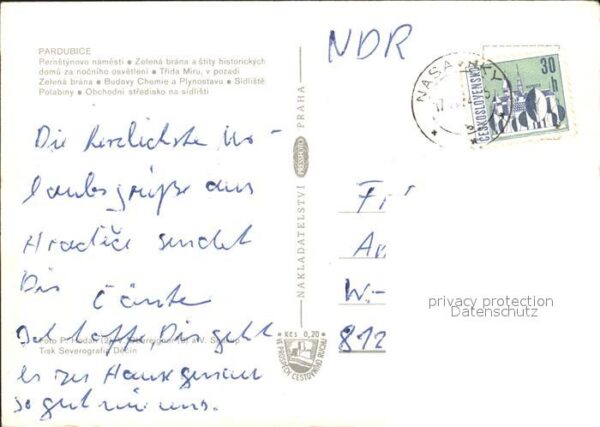 PARDUBICE
Pernštýnovo náměstí • Zelená brána a štíty historických
domů za nočního osvětlení • Třída Míru, v pozadí
Zelená brána • Budovy Chemie a Plynostavu • Sídliště
Polabiny • Obchodní středisko na sídlišti
Die herzlichste Ur-
laubsgrüße aus
Hradiče sendet
Dir
Ich hoffe, Dir geht
es zu Hause genau
so gut wie uns.
Tisk Severografia Děčín
NAKLADATELSTVÍ PRESSFOTO PRAHA
Kčs 0,20
VE PROSPĚCH CESTOVNÍHO RUCHU
NDR
NASAVRKY
ČESKOSLOVENSKO
30
h
W-
privacy protection
Datenschutz